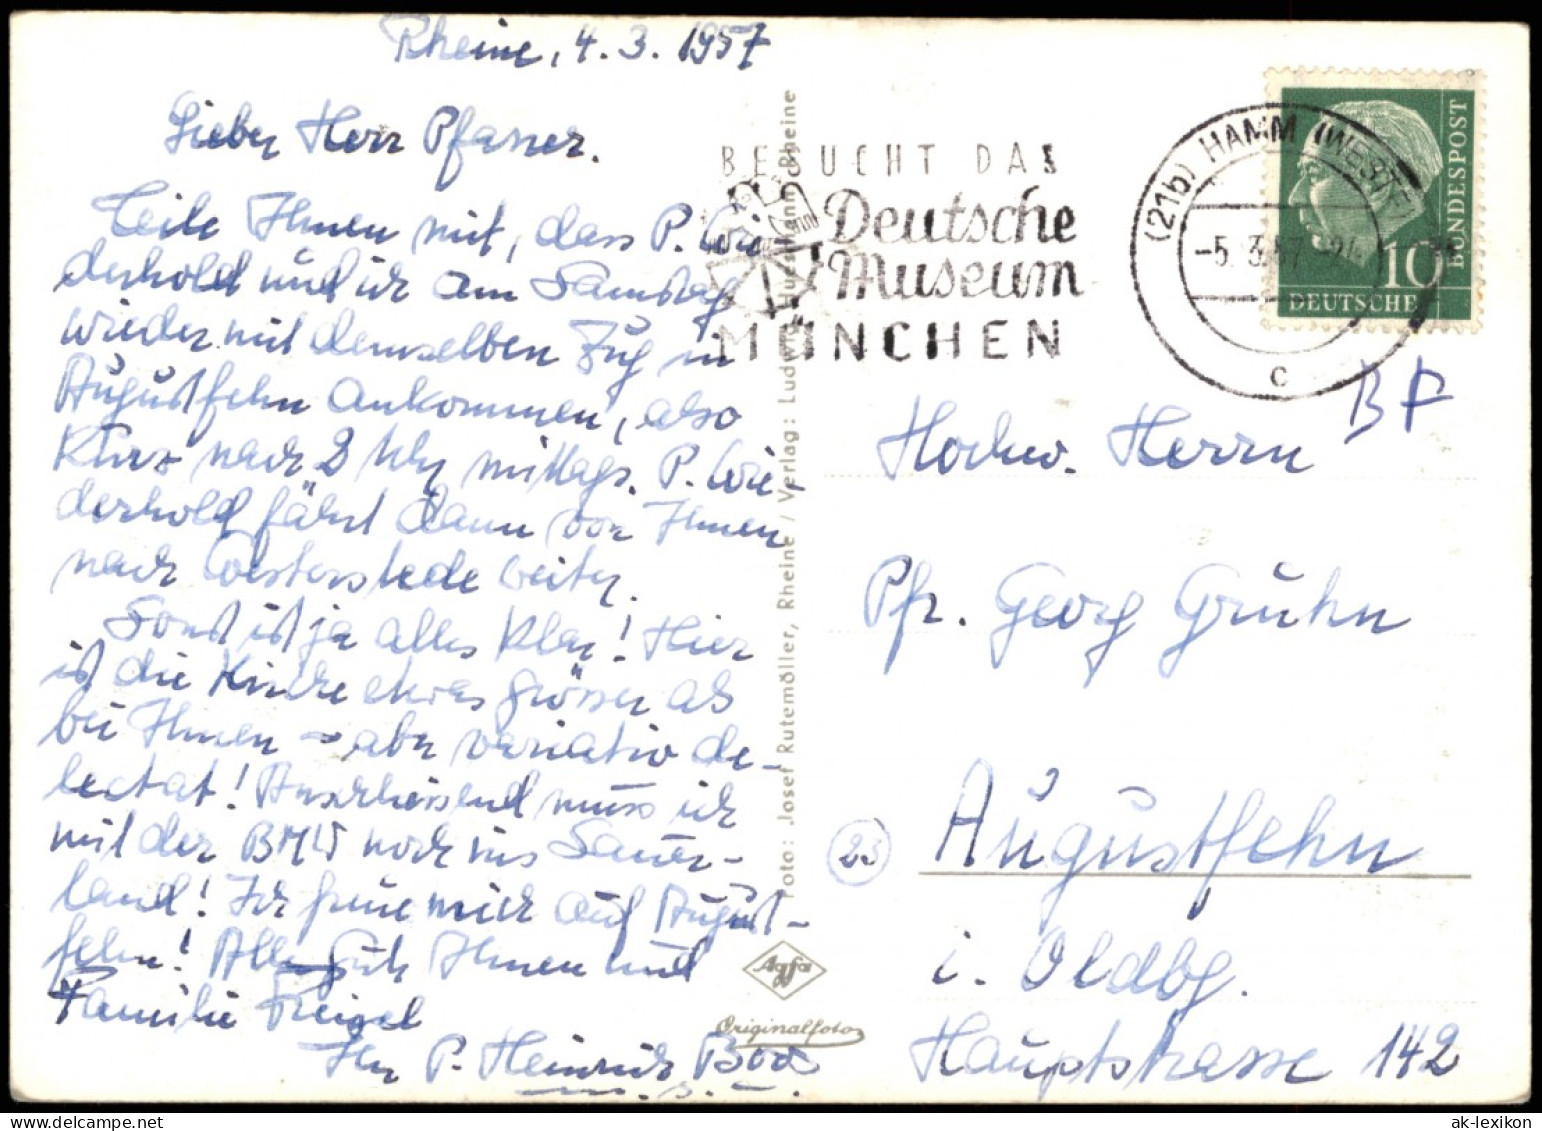 Rheine, 4. 3. 1957
Lieber Herr Pfarrer.
Teile Ihnen mit, dass P. Wie-
derhold und ich am Samstag
wieder mit demselben Zug in
Augustfehn ankommen, also
kurz nach 2 Uhr mittags. P. Wie-
derhold fährt dann von Ihnen
nach Westerstede weiter.
Sonst ist ja alles klar! Hier
ist die Kirche etwas grösser als
bei Ihnen – aber variatio de-
lectat! Anschliessend muss ich
mit der BMW noch ins Sauer-
land! Ich freue mich auf August-
fehn! Alles Gute Ihnen und
Familie Freigel
Ihr P. Heinrich
Foto: Josef Rutemöller, Rheine / Verlag: Ludwig Rheine
Agfa
Originalfoto
BESUCHT DAS
Deutsche
Museum
MÜNCHEN
(21b) HAMM (WESTF)
-5. 3. 57
c
BUNDESPOST
10
DEUTSCHE
BF
Hochw. Herrn
Pfr. Georg Gruhn
23
Augustfehn
i. Oldbg.
Hauptstrasse 142
ak-lexikon